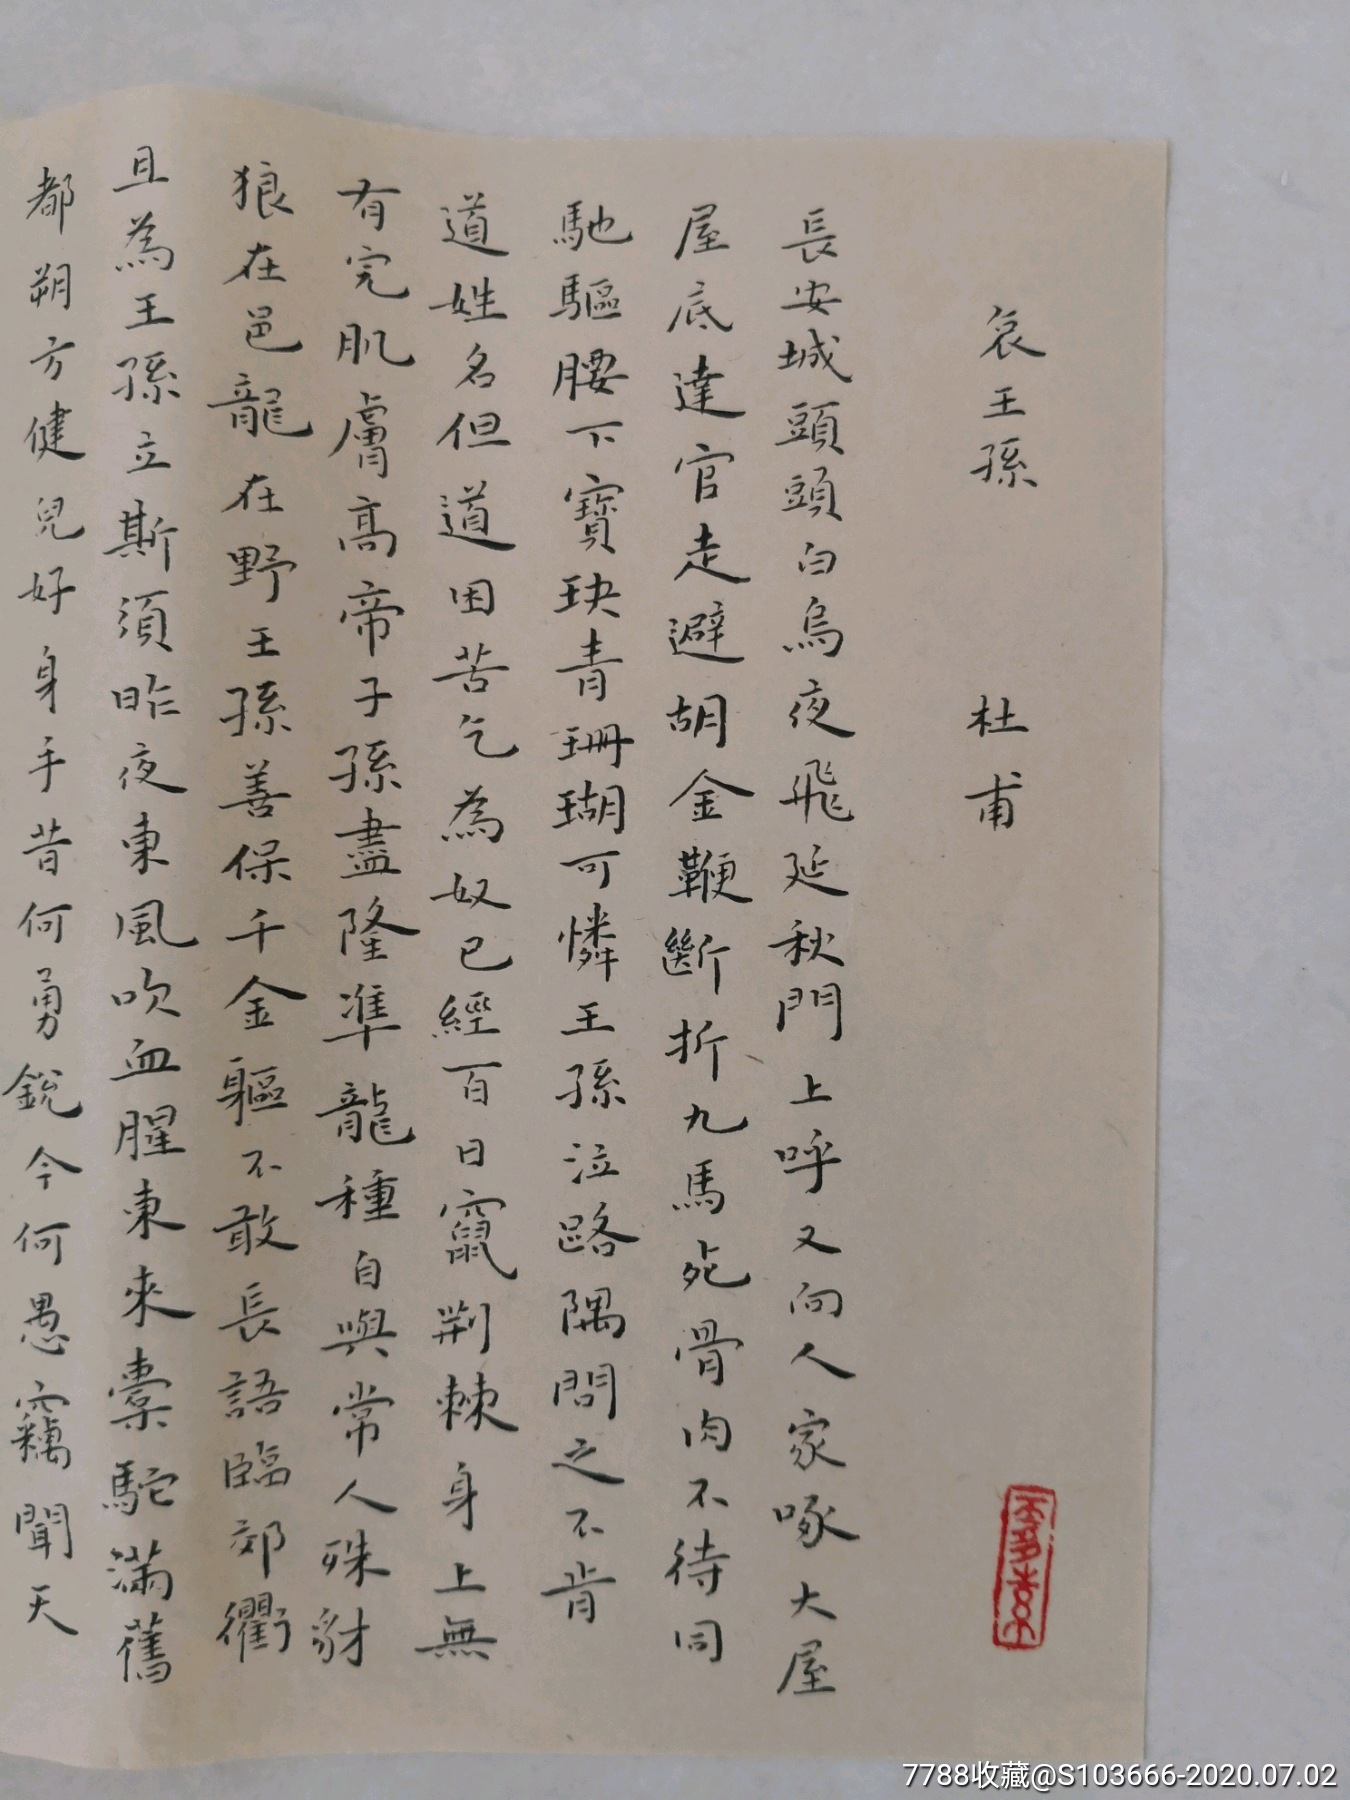 哀王孫 杜甫
長安城頭頭白烏夜飛延秋門上呼又向人家啄大屋
屋底達官走避胡金鞭斷折九馬死骨肉不待同
馳驅腰下寶玦青珊瑚可憐王孫泣路隅問之不肯
道姓名但道困苦乞為奴已經百日竄荆棘身上無
有完肌膚高帝子孫盡隆準龍種自與常人殊豺
狼在邑龍在野王孫善保千金軀不敢長語臨郊衢
且為王孫立斯須昨夜東風吹血腥東來橐駝滿舊
都朔方健兒好身手昔何勇銳今何愚竊聞天
7788收藏@S103666-2020.07.02